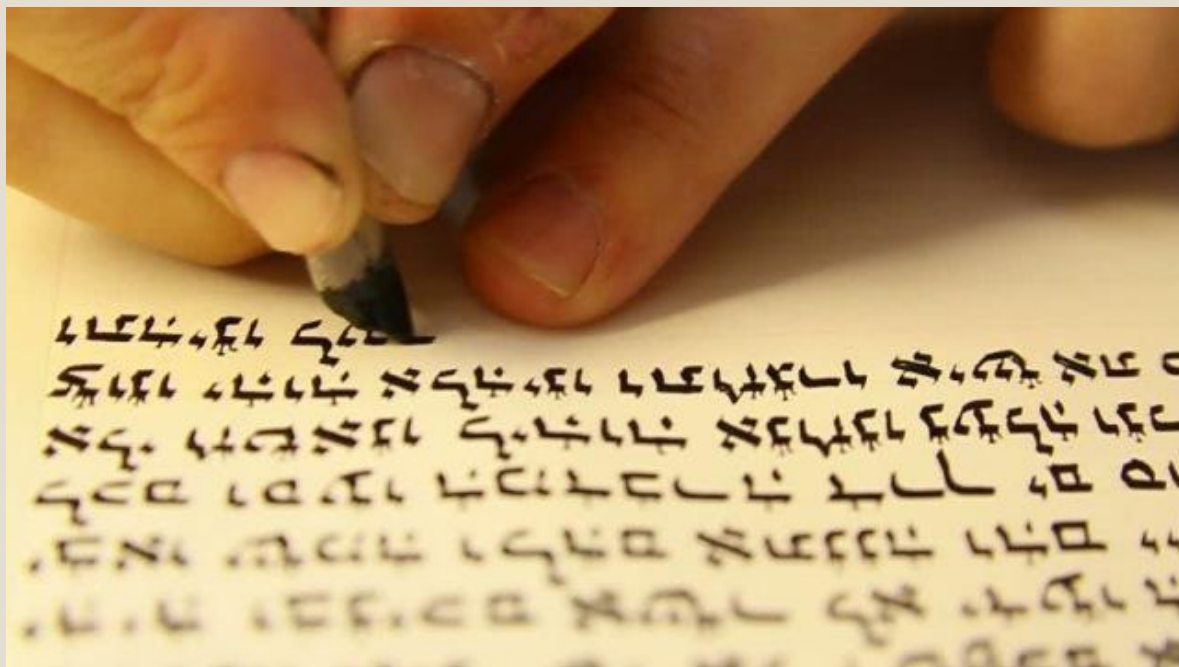 יהיה ובניכם אשר לא ידעו
יבאו שמה ולהם אתננה והם
לכם וסעו המדברה דרך ים
אלי חטאנו ליהוה אנחנו נעלה
צונו יהוה אלהינו ותחגרו איש את
ותהינו